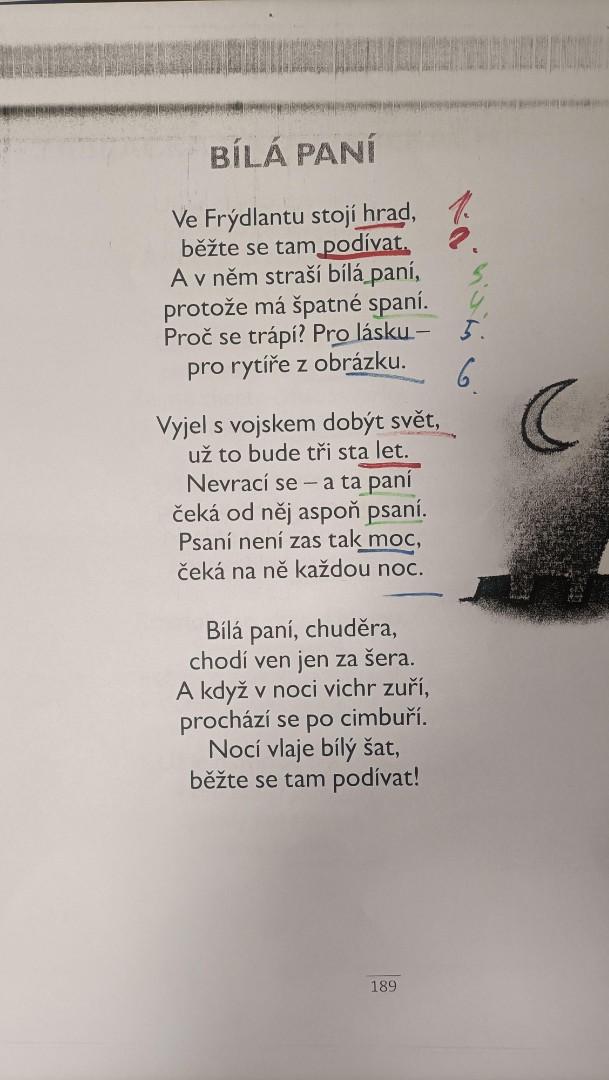 BÍLÁ PANÍ
Ve Frýdlantu stojí hrad, 1.
běžte se tam podívat. 2.
A v něm straší bílá paní, 3.
protože má špatné spaní. 4.
Proč se trápí? Pro lásku – 5.
pro rytíře z obrázku. 6.
Vyjel s vojskem dobýt svět,
už to bude tři sta let.
Nevrací se – a ta paní
čeká od něj aspoň psaní.
Psaní není zas tak moc,
čeká na ně každou noc.
Bílá paní, chuděra,
chodí ven jen za šera.
A když v noci vichr zuří,
prochází se po cimbuří.
Nocí vlaje bílý šat,
běžte se tam podívat!
189